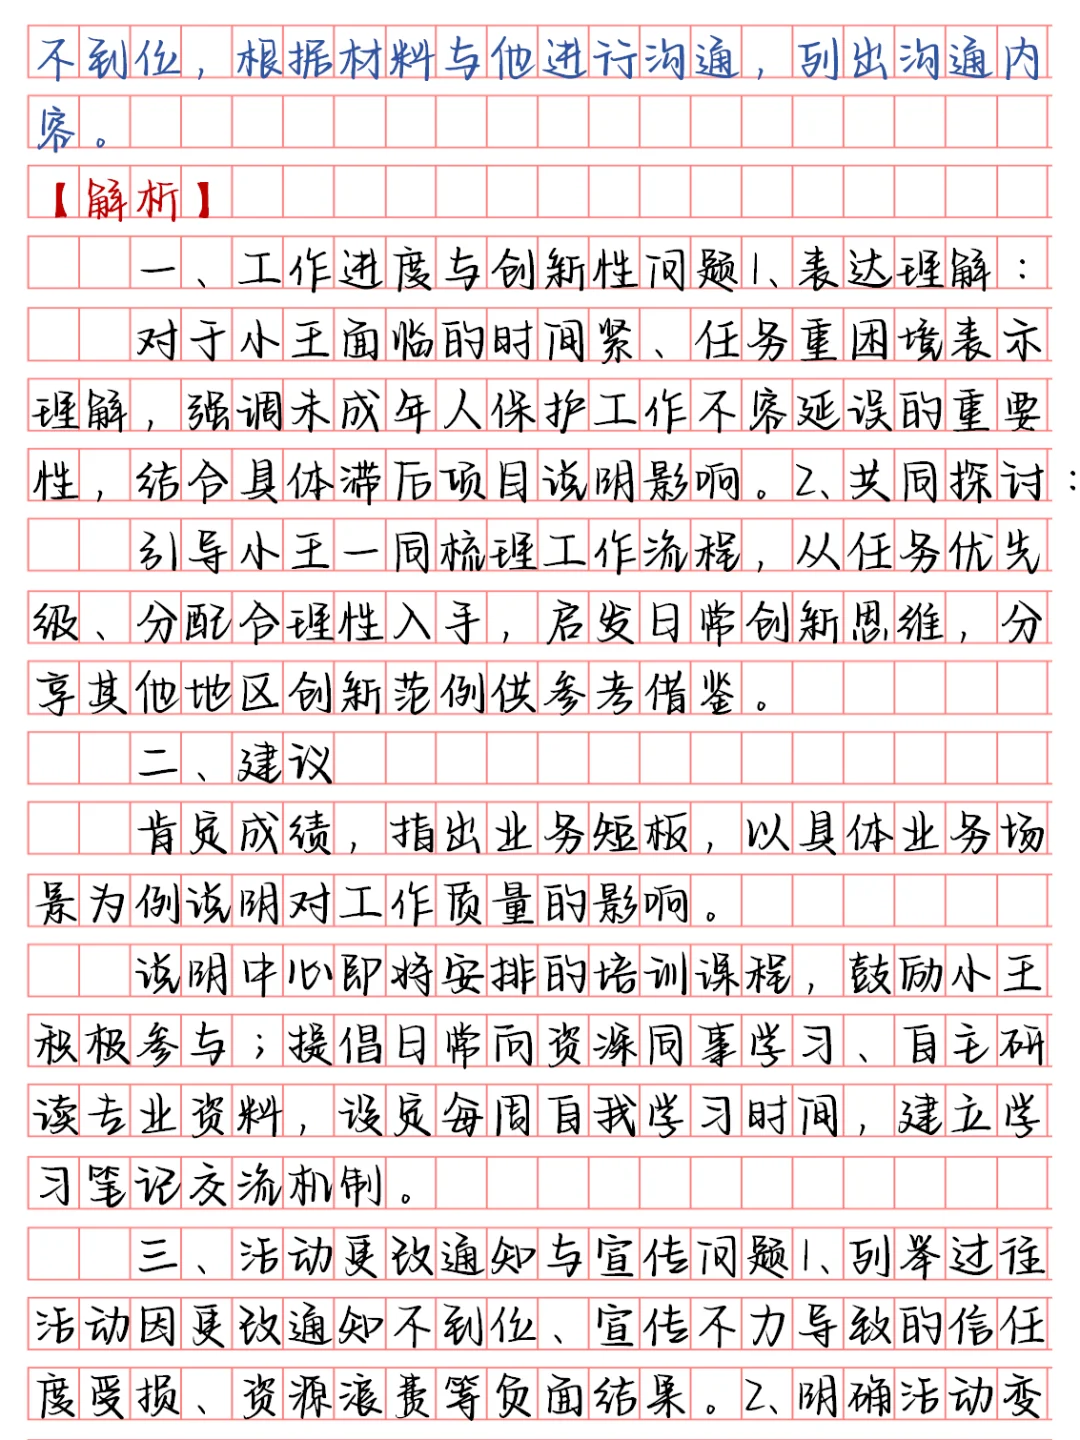 不到位，根据材料与他进行沟通，列出沟通内
容。
【解析】
一、工作进度与创新性问题1、表达理解：
对于小王面临的时间紧、任务重困境表示
理解，强调未成年人保护工作不容延误的重要
性，结合具体滞后项目说明影响。2、共同探讨：
引导小王一同梳理工作流程，从任务优先
级、分配合理性入手，启发日常创新思维，分
享其他地区创新范例供参考借鉴。
二、建议
肯定成绩，指出业务短板，以具体业务场
景为例说明对工作质量的影响。
说明中心即将安排的培训课程，鼓励小王
积极参与；提倡日常向资深同事学习、自主研
读专业资料，设定每周自我学习时间，建立学
习笔记交流机制。
三、活动更改通知与宣传问题1、列举过往
活动因更改通知不到位、宣传不力导致的信任
度受损、资源浪费等负面结果。2、明确活动变